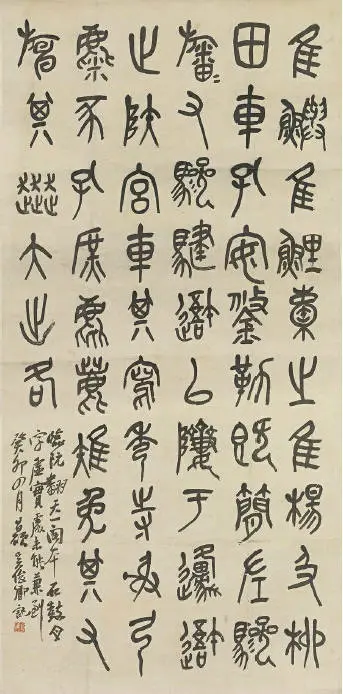 隹鱮隹鯉橐之隹楊及柳
田車孔安鋚勒既簡左驂
旛=又驂騝䢩以隮于邍䢩
止陕宮車其寫秀寺射弓
麋豕孔庶麀鹿雉兔其又
旃其大出各
臨阮翻天一閣本石鼓全
字虛實處未能兼到
癸卯四月吳俊卿記